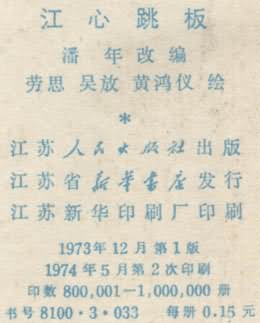 江心跳板
潘年改编
劳思 吴放 黄鸿仪 绘
*
江苏人民出版社出版
江苏省新华书店发行
江苏新华印刷厂印刷
1973年12月第1版
1974年5月第2次印刷
印数 800,001—1,000,000 册
书号 8100·3·033 每册 0.15 元